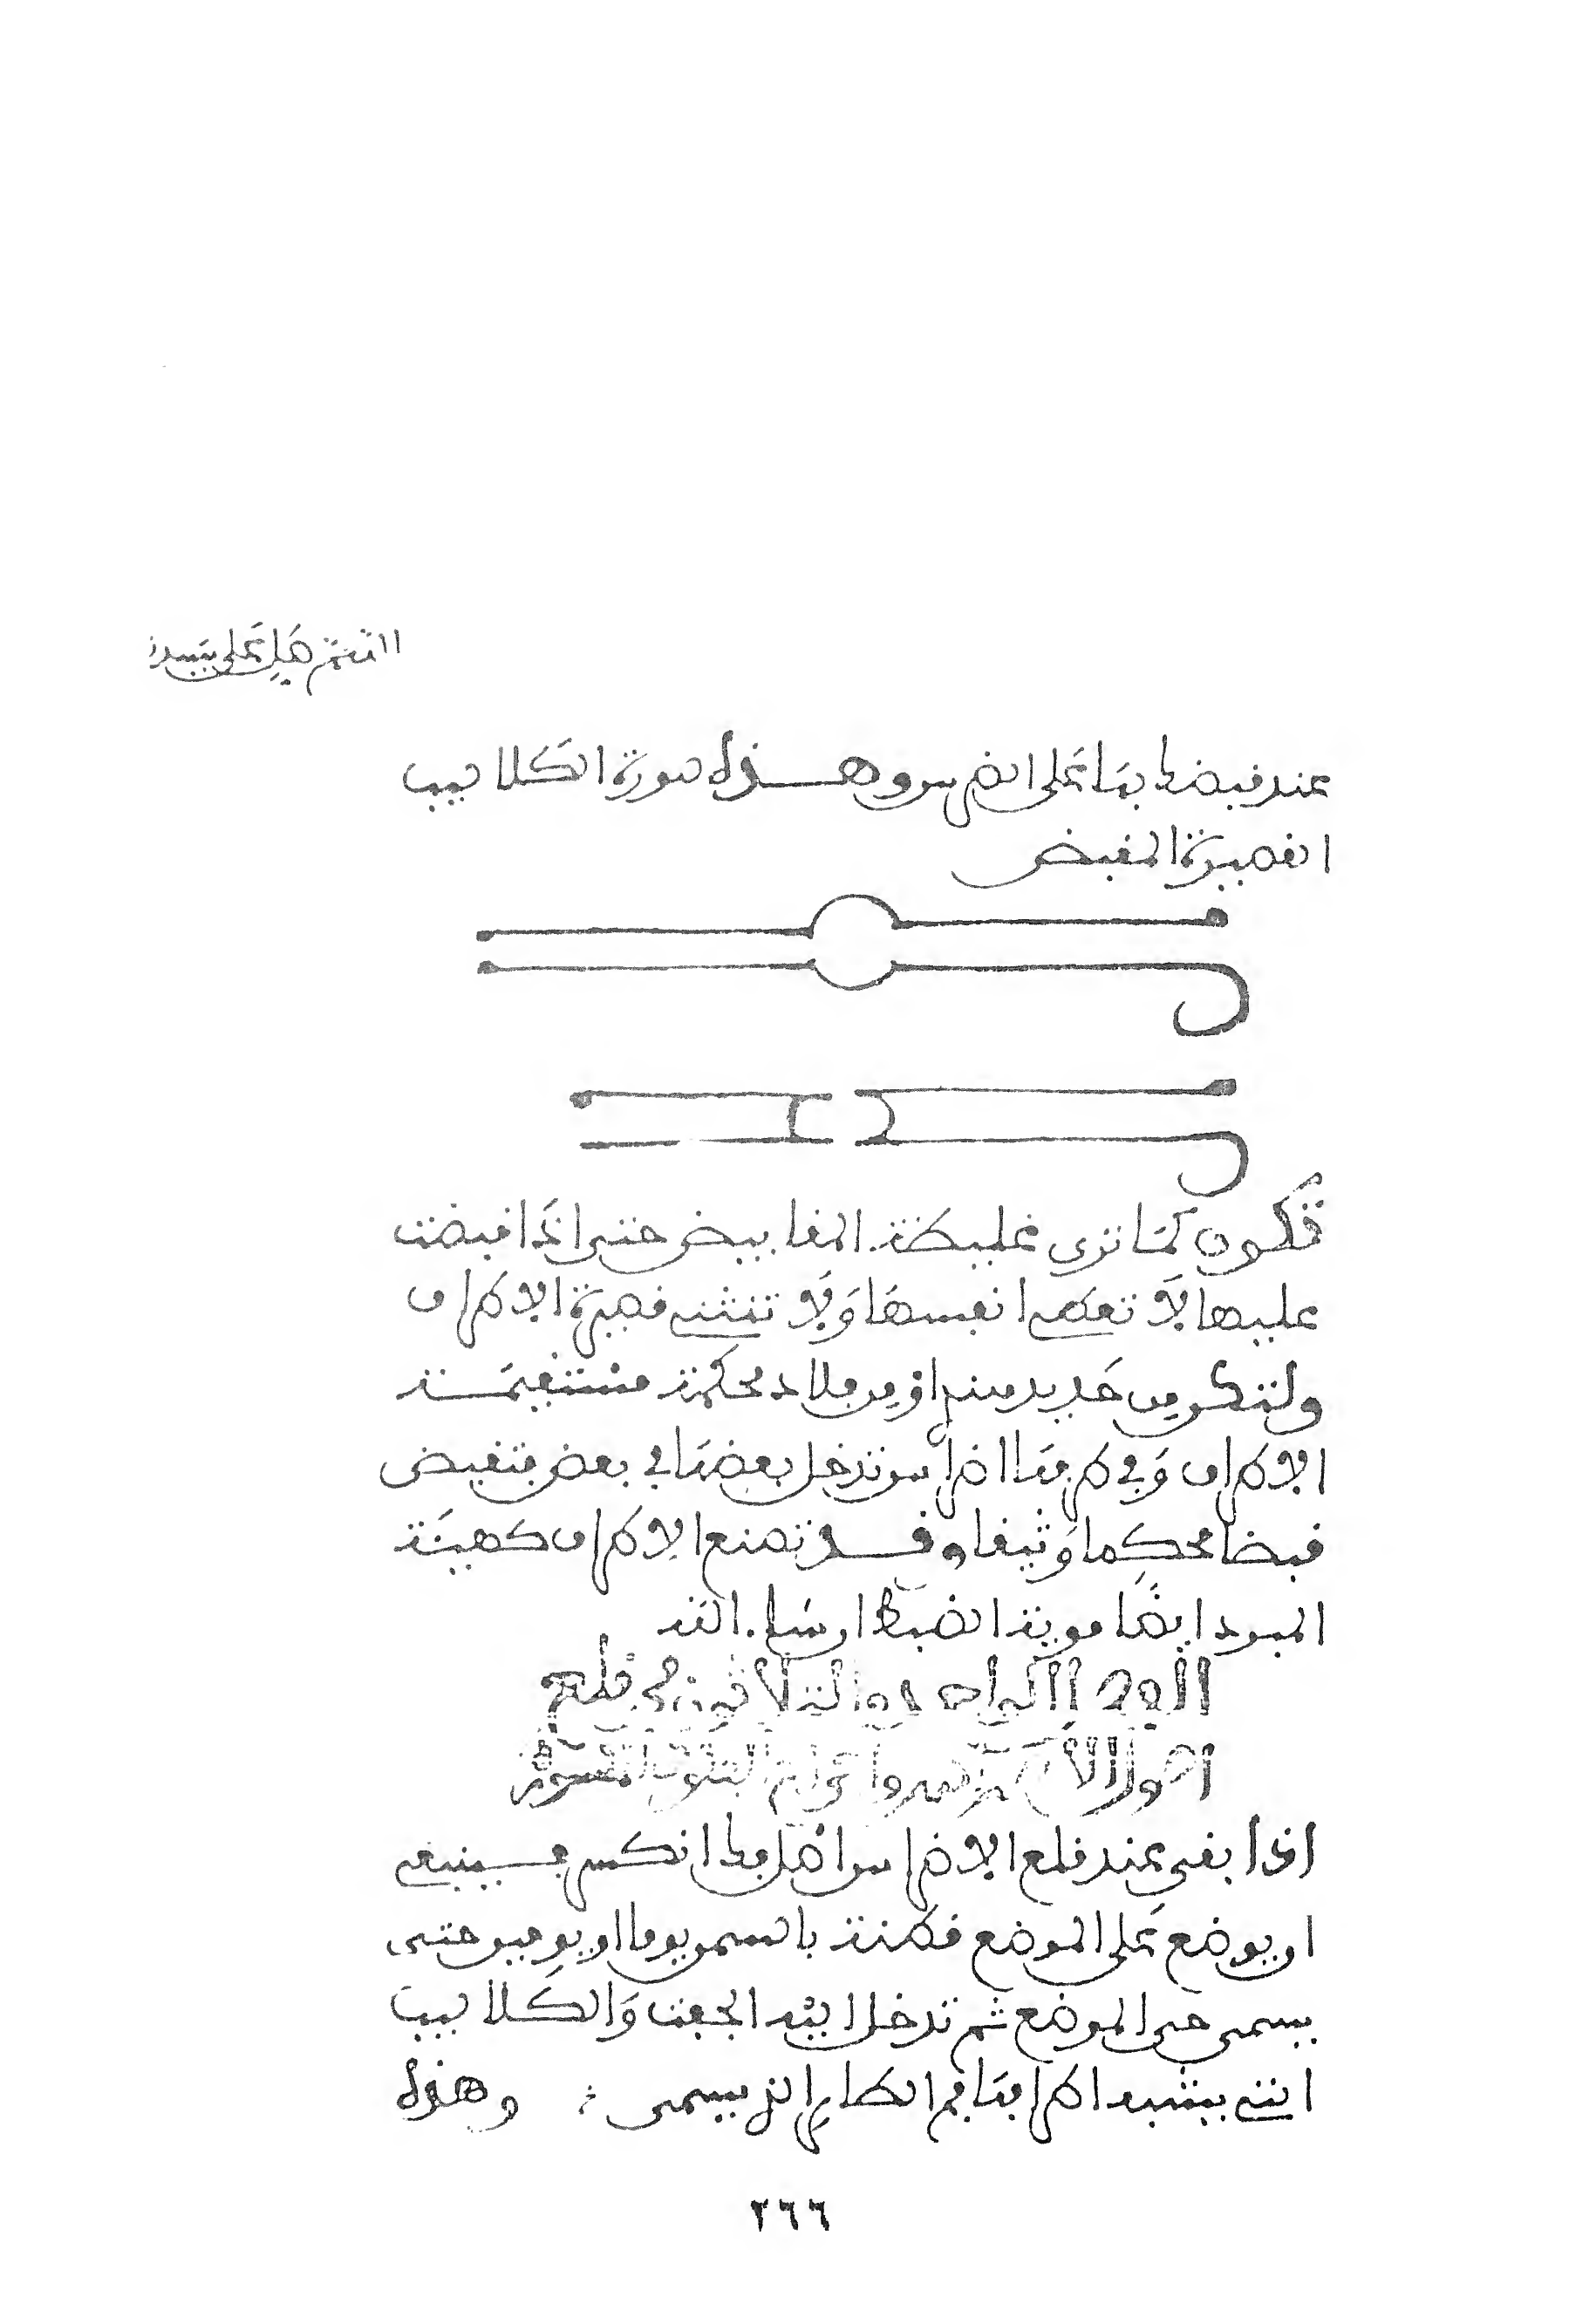 اللهم صل على سيدنا
عند قبضك بها على الضرس وهذه صورة الكلاليب
القصيرة المقبض
تكون كما ترى غليظة المقابيض حتى إذا قبضت
عليها لا تعطى نفسها ولا تنثنى قصيرة الأطراف
ولتكن من حديد أو من فولاد محكمة مستقيمة
الأطراف وفي طرفها أضراس تدخل بعضها في بعض فتقبض
قبضا محكما وثيقا وقد تصنع الأطراف كهيئة
المبرد أيضا قوية الضبط ان شا الله
الفصل الواحد والثلاثون في قلع
أصول الأضراس وإخراج العظوم المكسورة
اذا بقى عند قلع الاضراس أصل قد انكسر فينبغى
ان يوضع على الموضع قطنة بالسمن يوما او يومين حتى
يسترخى الموضع ثم تدخل اليه الجفت والكلاليب
التى يشبه اطرافها فم الطاير الذ يسمى وهذه
٢٦٦